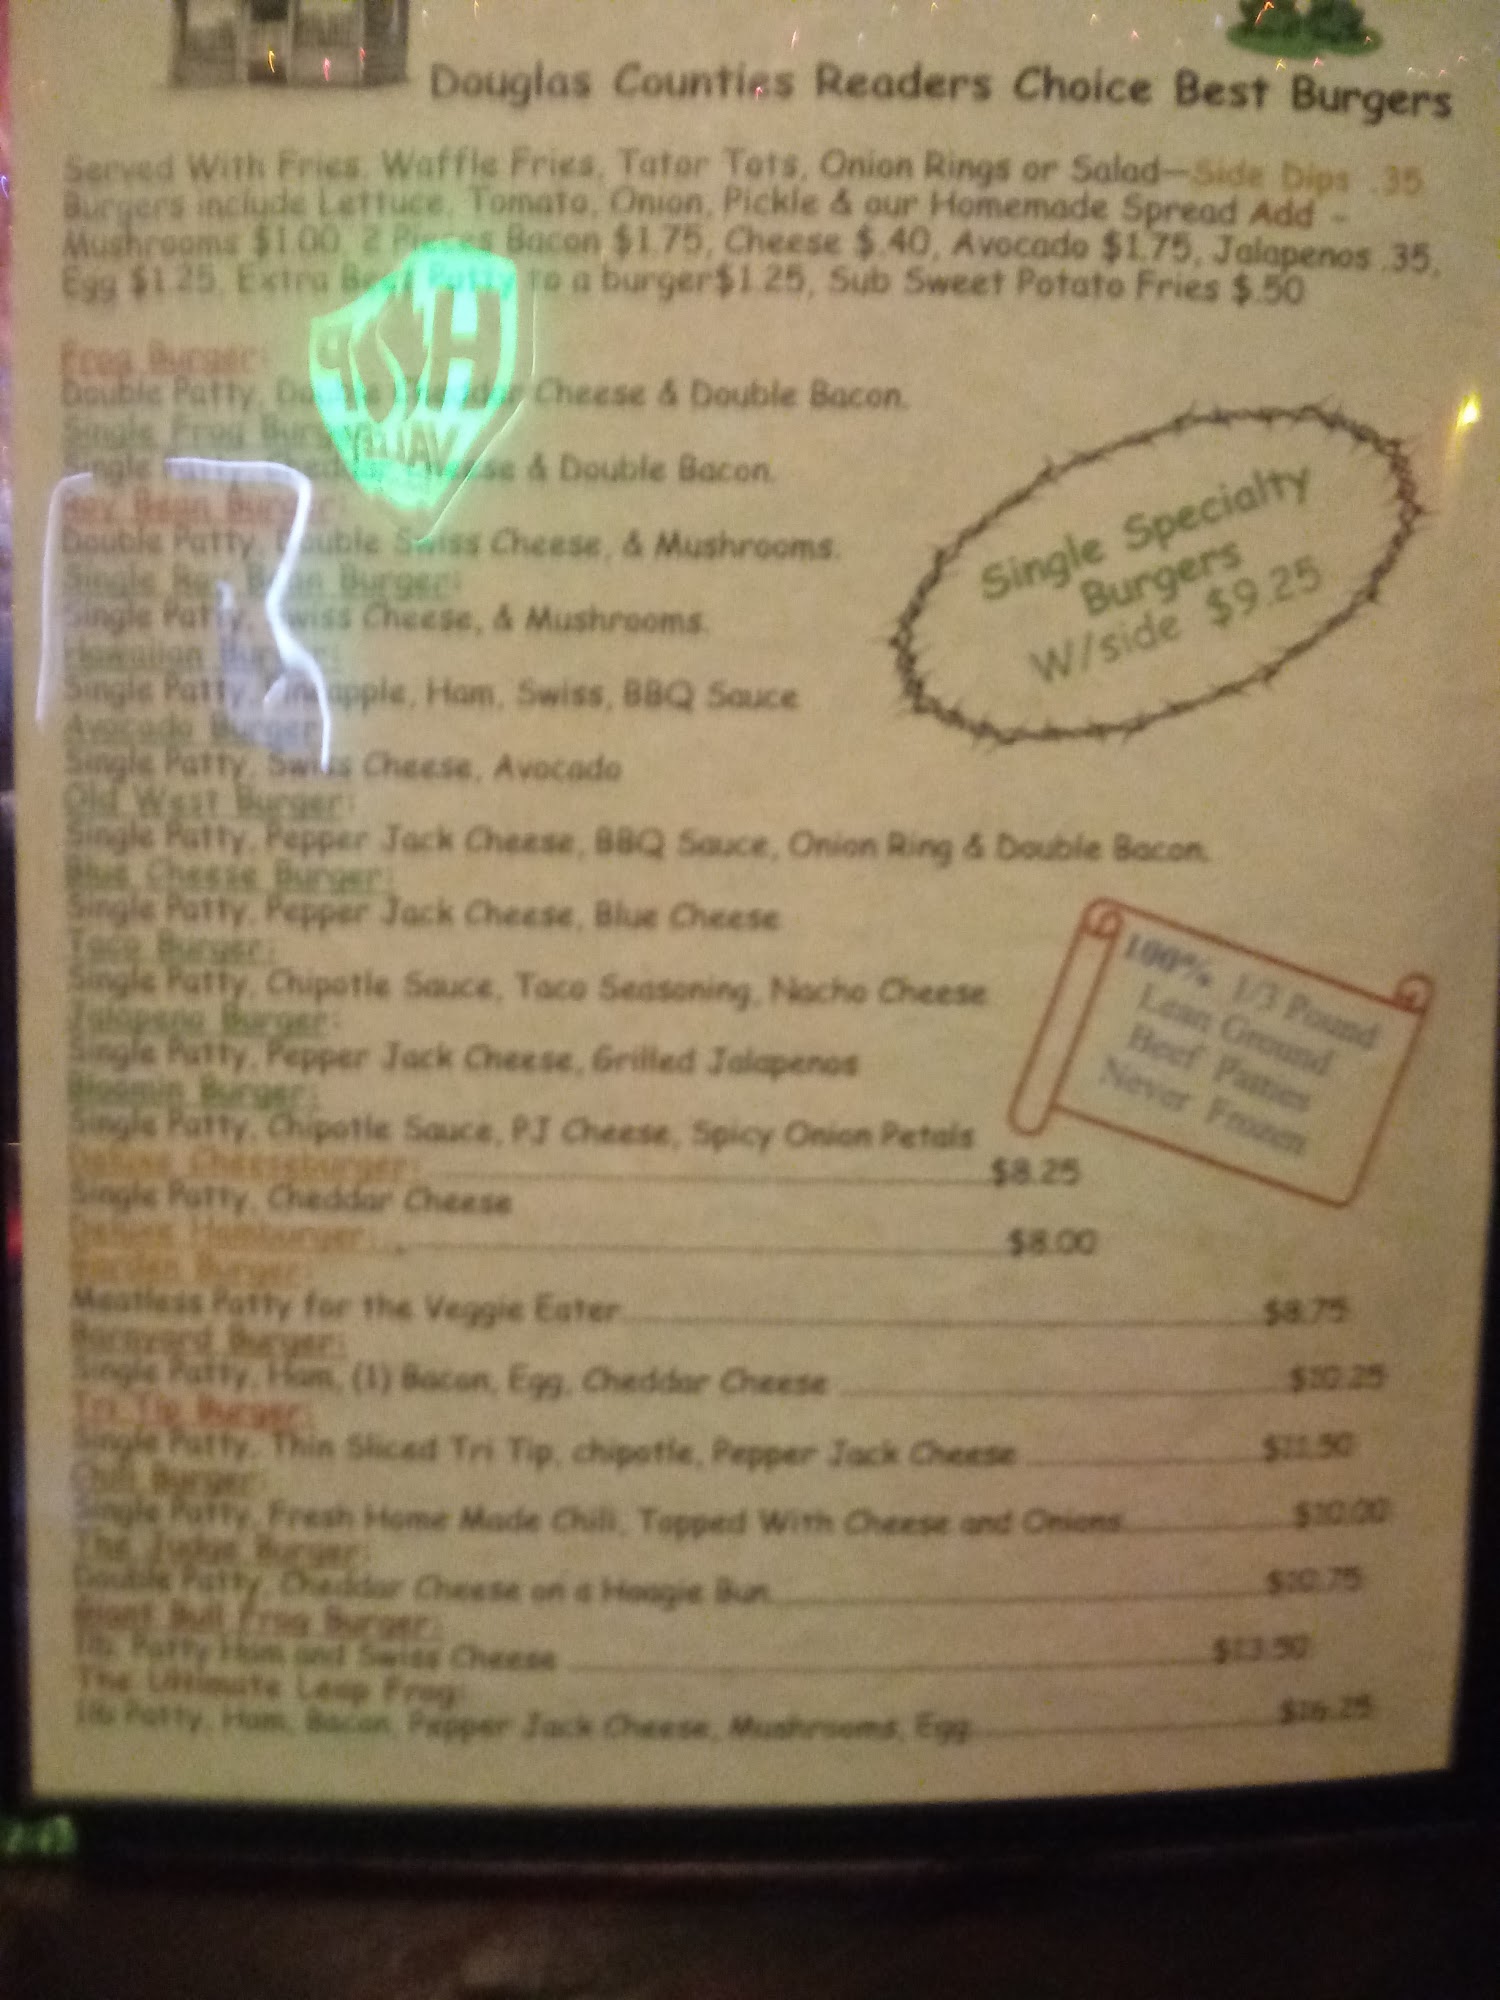 Douglas Counties Readers Choice Best Burgers
Served With Fries, Waffle Fries, Tator Tots, Onion Rings or Salad—Side Dips .35
Burgers include Lettuce, Tomato, Onion, Pickle & our Homemade Spread Add -
Mushrooms $1.00, 2 Pieces Bacon $1.75, Cheese $.40, Avocado $1.75, Jalapenos .35,
Egg $1.25, Extra Beef Patty to a burger$1.25, Sub Sweet Potato Fries $.50
Frog Burger:
Double Patty, Double Cheddar Cheese & Double Bacon.
Single Frog Burger:
Single Patty, Cheddar Cheese & Double Bacon.
Burger:
Double Patty, Double Swiss Cheese, & Mushrooms.
Single Bean Burger:
Single Patty, Swiss Cheese, & Mushrooms.
Hawaiian Burger:
Single Patty, Pineapple, Ham, Swiss, BBQ Sauce
Avocado Burger
Single Patty, Swiss Cheese, Avocado
Old West Burger:
Single Patty, Pepper Jack Cheese, BBQ Sauce, Onion Ring & Double Bacon.
Blue Cheese Burger:
Single Patty, Pepper Jack Cheese, Blue Cheese
Taco Burger:
Single Patty, Chipotle Sauce, Taco Seasoning, Nacho Cheese
Jalapeno Burger:
Single Patty, Pepper Jack Cheese, Grilled Jalapenos
Bloomin Burger:
Single Patty, Chipotle Sauce, PJ Cheese, Spicy Onion Petals
Deluxe Cheeseburger: $8.25
Single Patty, Cheddar Cheese
Deluxe Hamburger: $8.00
Garden Burger:
Meatless Patty for the Veggie Eater $8.75
Barnyard Burger:
Single Patty, Ham, (1) Bacon, Egg, Cheddar Cheese $10.25
Tri Tip Burger:
Single Patty, Thin Sliced Tri Tip, chipotle, Pepper Jack Cheese $11.50
Chili Burger:
Single Patty, Fresh Home Made Chili, Topped With Cheese and Onions $10.00
The Judge Burger:
Double Patty, Cheddar Cheese on a Hoagie Bun $10.75
Giant Bull Frog Burger:
1lb Patty Ham and Swiss Cheese $13.50
The Ultimate Leap Frog:
1lb Patty, Ham, Bacon, Pepper Jack Cheese, Mushrooms, Egg $16.25
Single Specialty
Burgers
W/side $9.25
100% 1/3 Pound
Lean Ground
Beef Patties
Never Frozen